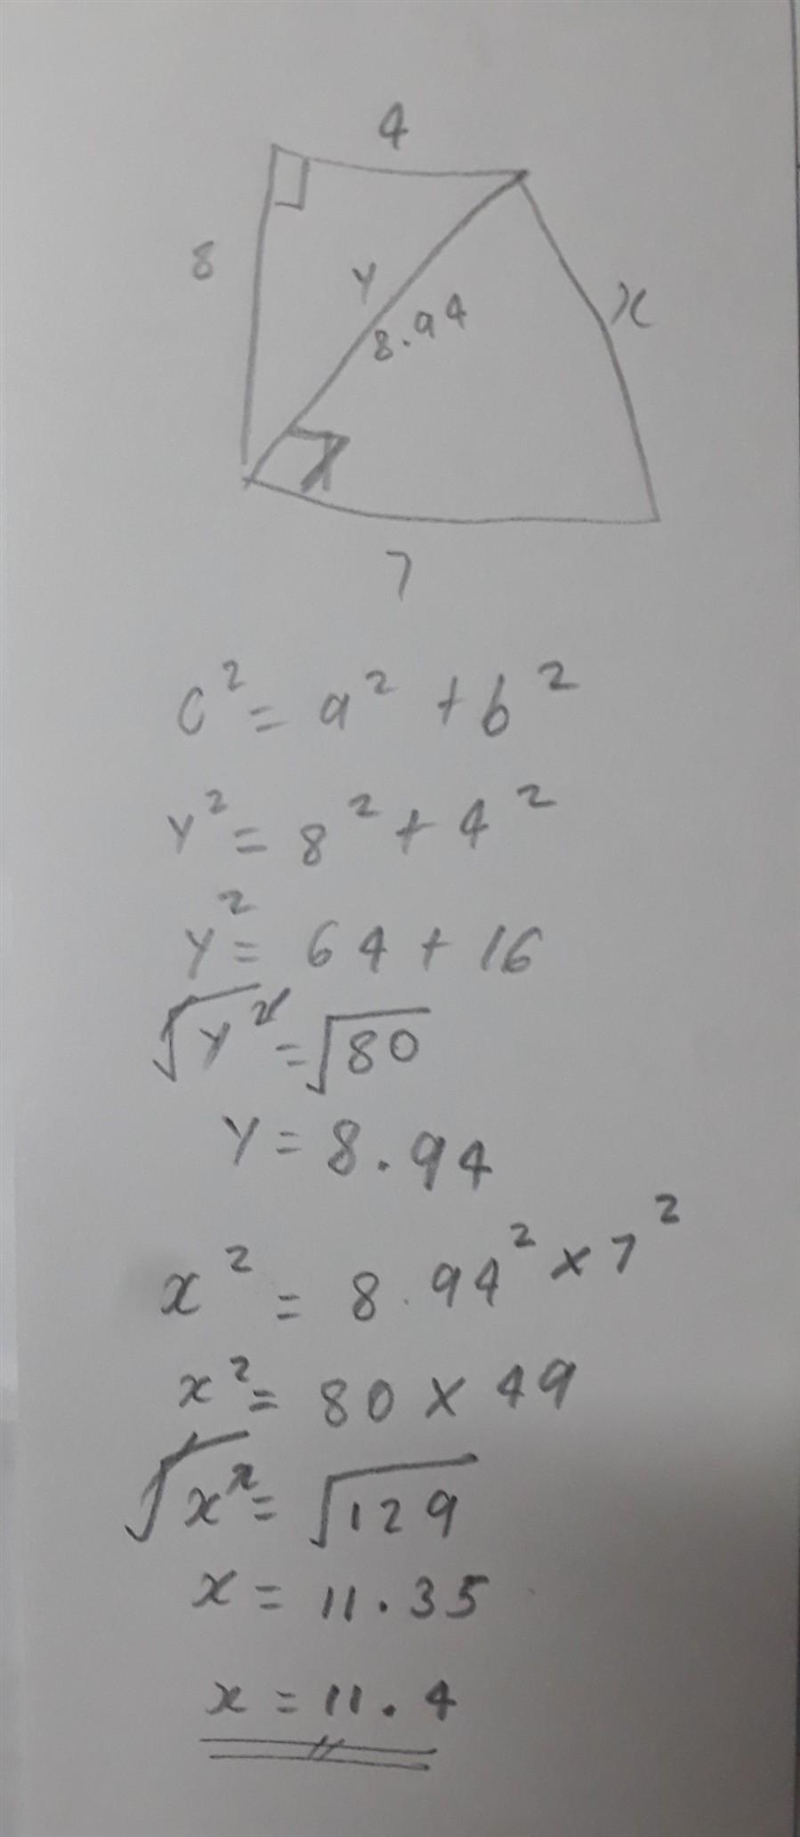 4
8
Y
8.94
x
7
c² = a² + b²
Y² = 8² + 4²
Y² = 64 + 16
√Y² = √80
Y = 8.94
x² = 8.94² × 7²
x² = 80 × 49
√x² = √129
x = 11.35
x = 11.4